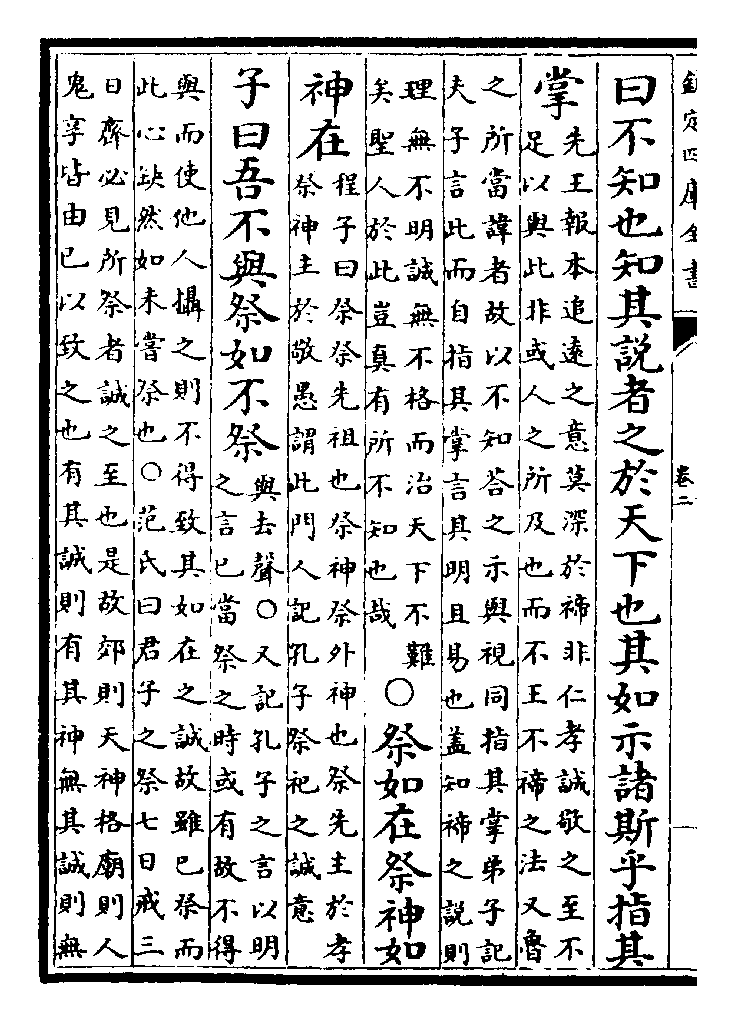 欽定四庫全書
卷二
曰不知也知其說者之於天下也其如示諸斯乎指其
掌
先王報本追遠之意莫深於禘非仁孝誠敬之至不
足以與此非或人之所及也而不王不禘之法又魯
之所當諱者故以不知荅之示與視同指其掌弟子記
夫子言此而自指其掌言其明且易也蓋知禘之說則
理無不明誠無不格而治天下不難
矣聖人於此豈真有所不知也哉
○祭如在祭神如
神在
程子曰祭祭先祖也祭神祭外神也祭先主於孝
祭神主於敬愚謂此門人記孔子祭祀之誠意
子曰吾不與祭如不祭
與去聲○又記孔子之言以明
之言已當祭之時或有故不得
與而使他人攝之則不得致其如在之誠故雖已祭而
此心缺然如未嘗祭也○范氏曰君子之祭七日戒三
日齊必見所祭者誠之至也是故郊則天神格廟則人
鬼享皆由已以致之也有其誠則有其神無其誠則無